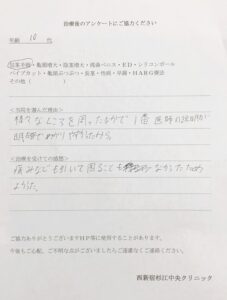 治療後のアンケートにご協力ください
年齢 10 代
包茎手術・亀頭増大・陰茎増大・埋没ペニス・ED・シリコンボール
パイプカット・亀頭ぶつぶつ・長茎・性病・早漏・HARG療法
その他（　　　　）
<当院を選んだ理由>
様々なところを周ったなかで1番医師の説明が
明確でわかりやすかったから。
<治療を受けての感想>
痛みなども引いて困ることも特になかったため
よかった。
ご協力ありがとうございます
今後もご心配、ご不明な点がございましたらご遠慮なくご連絡ください。
西新宿杉江中央クリニック